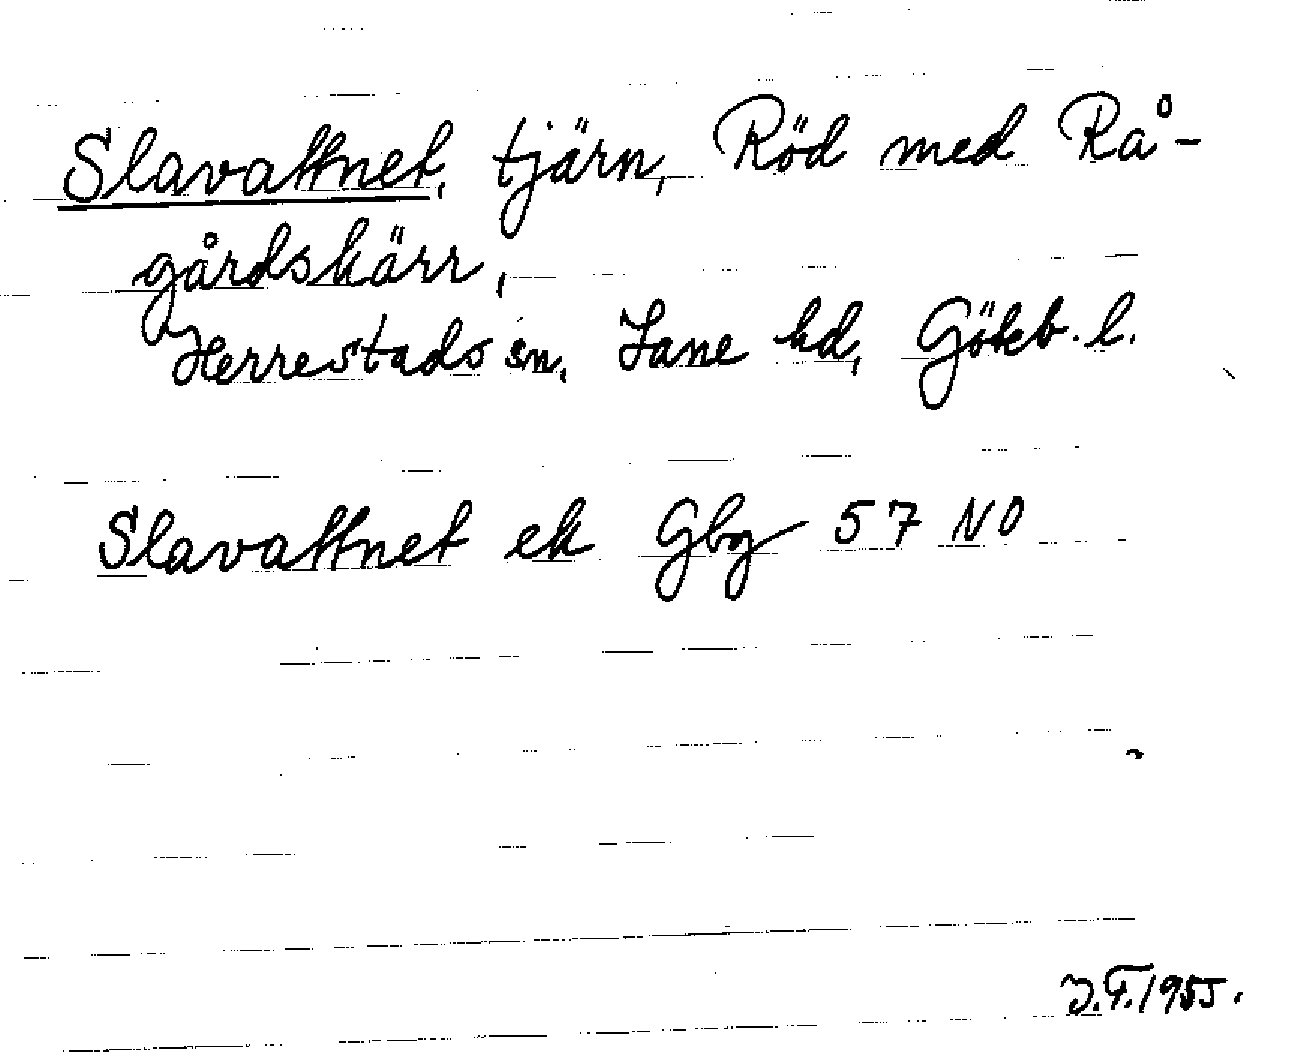 Slavattnet, tjärn, Röd med Rå-
gårdskärr,
Herrestads sn, Lane hd, Göteb. l.
Slavattnet ek Gbg 57 NO
J.F. 1955.